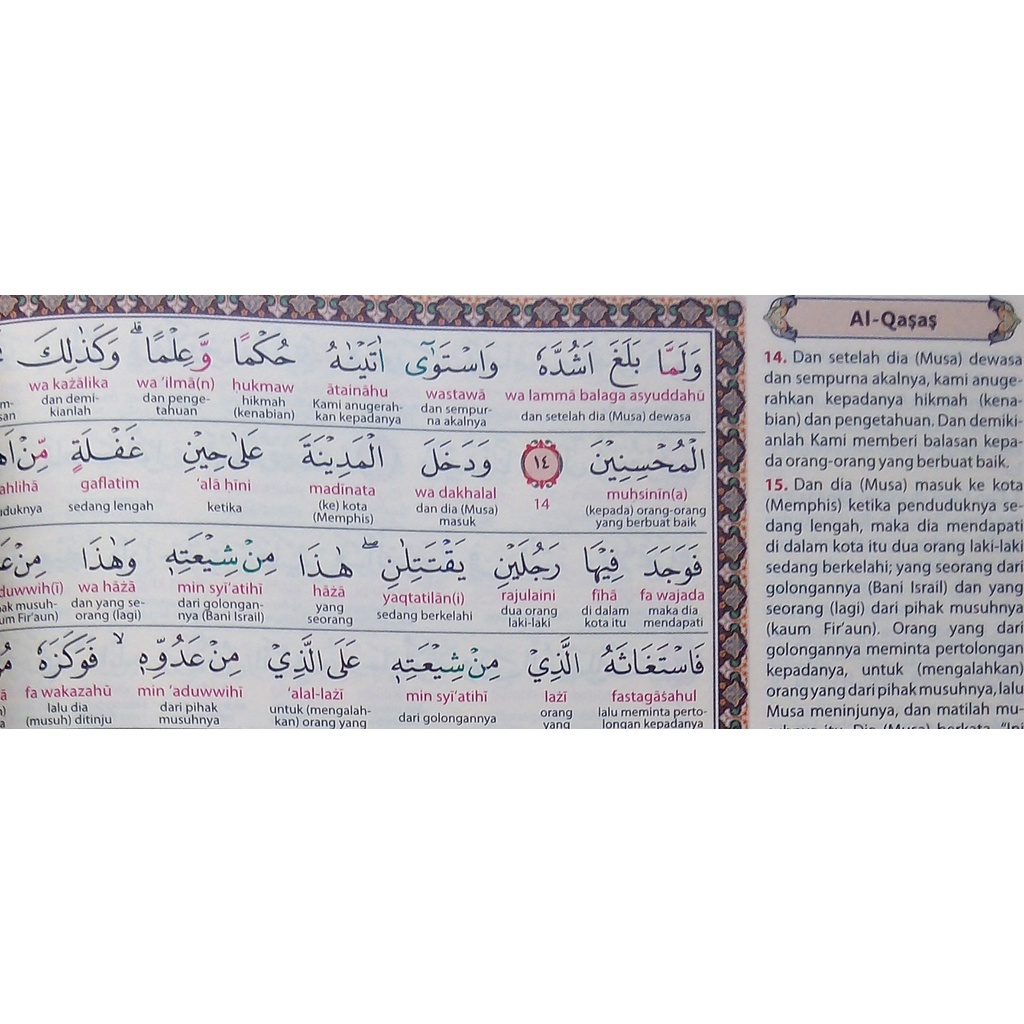 Al-Qaṣaṣ
وَلَمَّا بَلَغَ اَشُدَّهٗ وَاسْتَوٰٓى اٰتَيْنٰهُ حُكْمًا وَّعِلْمًاۗ وَكَذٰلِكَ
wa lammā balaga asyuddahū wastawā ātaināhu ḥukmaw wa ‘ilmā(n) wa każālika
dan setelah dia (Musa) dewasa dan sempurna akalnya Kami anugerahkan kepadanya hikmah (kenabian) dan pengetahuan dan demikianlah
الْمُحْسِنِيْنَ ١٤ وَدَخَلَ الْمَدِيْنَةَ عَلٰى حِيْنِ غَفْلَةٍ مِّنْ
muḥsinīn(a) 14 wa dakhalal madīnata ‘alā ḥīni gaflatim ahlihā
(kepada) orang-orang yang berbuat baik dan dia (Musa) masuk (ke) kota (Memphis) ketika sedang lengah
فَوَجَدَ فِيْهَا رَجُلَيْنِ يَقْتَتِلٰنِۖ هٰذَا مِنْ شِيْعَتِهٖ وَهٰذَا مِنْ
fa wajada fīhā rajulaini yaqtatilān(i) hāżā min syī‘atihī wa hāżā
maka dia mendapati di dalam kota itu dua orang laki-laki sedang berkelahi yang seorang dari golongannya (Bani Israil) dan yang seorang (lagi)
فَاسْتَغَاثَهُ الَّذِيْ مِنْ شِيْعَتِهٖ عَلَى الَّذِيْ مِنْ عَدُوِّهٖۙ فَوَكَزَهٗ
fastagāṡahul lażī min syī‘atihī ‘alal-lażī min ‘aduwwihī fa wakazahū
lalu meminta pertolongan kepadanya orang yang dari golongannya untuk (mengalahkan) orang yang dari pihak musuhnya lalu dia (musuh) ditinju
14. Dan setelah dia (Musa) dewasa
dan sempurna akalnya, kami anuge-
rahkan kepadanya hikmah (kena-
bian) dan pengetahuan. Dan demiki-
anlah Kami memberi balasan kepa-
da orang-orang yang berbuat baik.
15. Dan dia (Musa) masuk ke kota
(Memphis) ketika penduduknya se-
dang lengah, maka dia mendapati
di dalam kota itu dua orang laki-laki
sedang berkelahi; yang seorang dari
golongannya (Bani Israil) dan yang
seorang (lagi) dari pihak musuhnya
(kaum Fir'aun). Orang yang dari
golongannya meminta pertolongan
kepadanya, untuk (mengalahkan)
orang yang dari pihak musuhnya, lalu
Musa meninjunya, dan matilah mu-